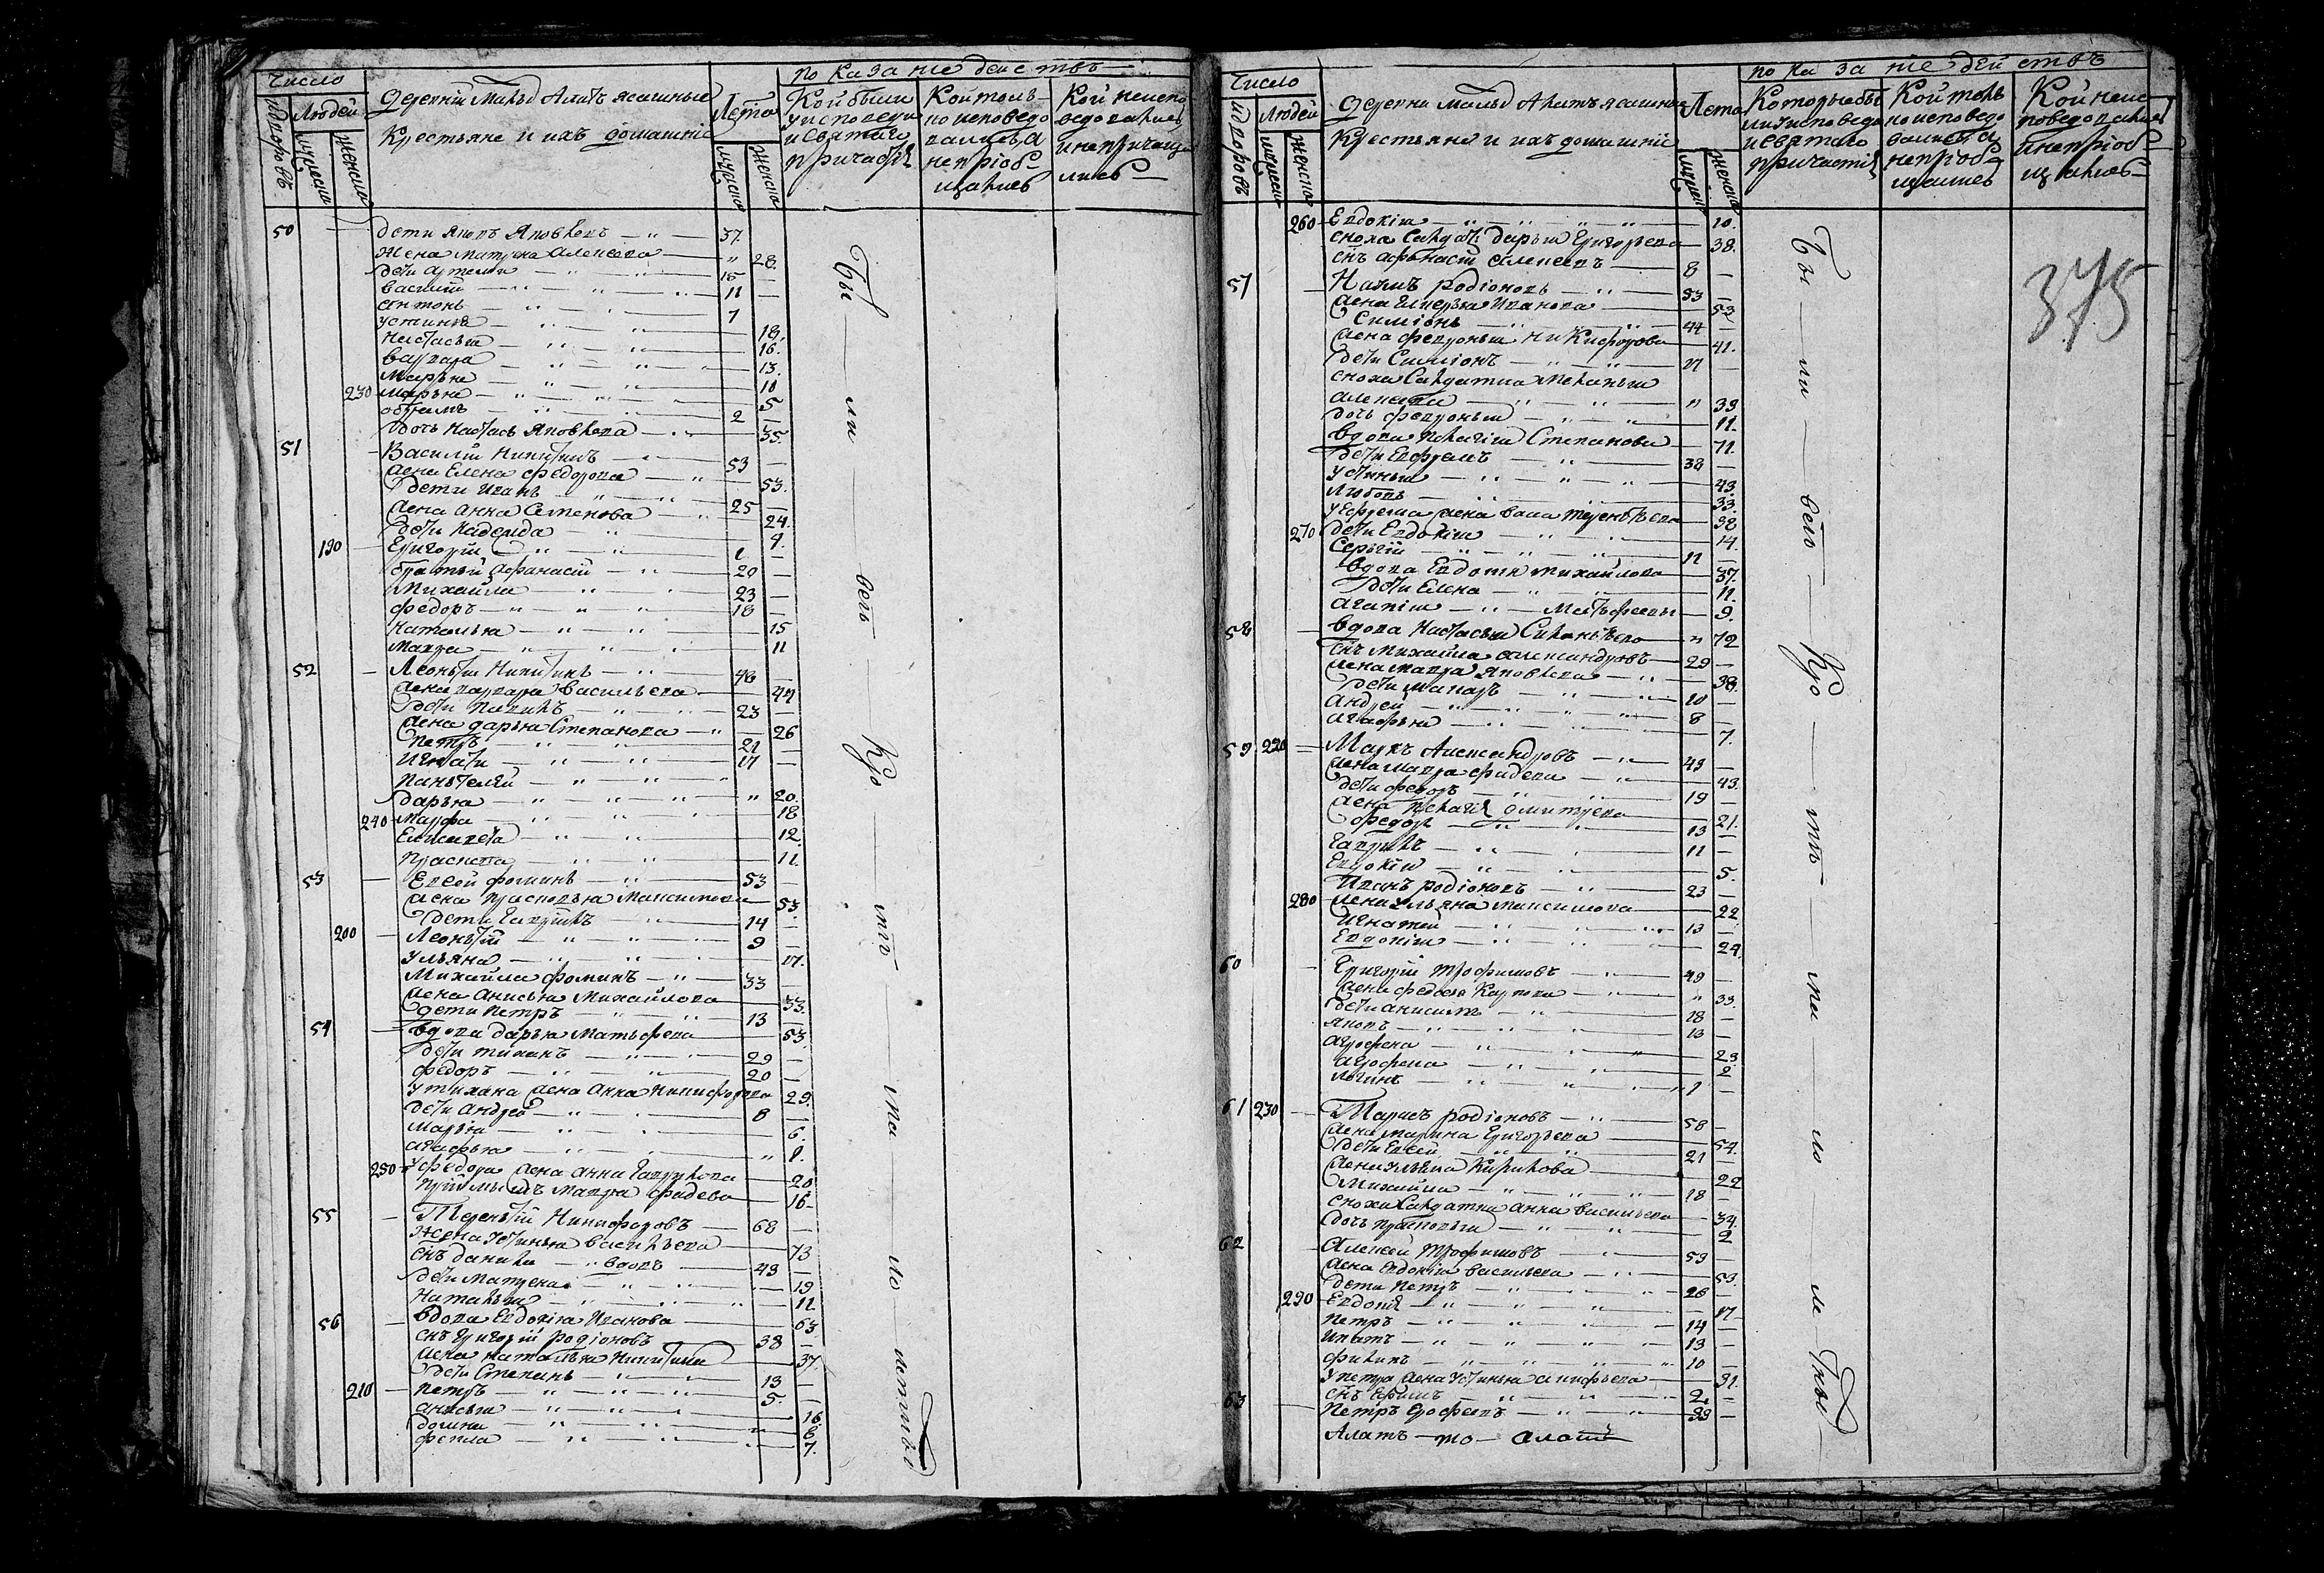 Число
Людей
Дворовъ
мужеска
женска
Деревни Малыя Алатъ ясашные
Крестьяне и ихъ домашние
Лета
мужска
женска
показание действъ
Кои были у исповеди и святаго причастія
Кои толь- ко исповедо вались, а не приоб щались
Кои не испо ведовались и не причаща лись
50 дети Яковъ Яковлевъ 37.
Жена матрена Алексеева 28.
дети артемии 15
василий 11
антонъ 7
устинья 18.
Настасья 16.
варвара 13.
Марья 10
230 марья 5
2
дочь Настасья Яковлева 35.
51 Василий Никитинъ 53
жена Елена федорова 53.
дети Иванъ 25
жена Анна Семенова 24.
дети Надежда 4.
190 Григорий 1
братья Афанасий 20
Михайла 23
федоръ 18
Наталья 15
Мавра 11
52 Леонтий Никитинъ 48
жена варвара васильева 47
дети Павилъ 23
жена дарья Степанова 26
Петръ 21
Игнати 17
Пантелей
дарья 20.
240 Марфа 18
Елисавета 12.
Прасковья 11
53 Евсей фоминъ 53
жена прасковья Максимова 53
дети Гаврилъ 14
200 Леонтий 9
Ульяна 17.
Михайла фоминъ 33
жена Анисья Михайлова 33.
дети Петръ 13
54 вдова дарья Матвеева 53.
дети тиханъ 29
федоръ 20
у тихана жена Анна Никифорова 29.
дети Андрей 8
Марья 6.
агафья 1.
250 у федора жена анна Гаврилова 20
мавра фадеева 16
55 Терентий Никифоровъ 68
Жена Устинья васильева 73
снъ данила вдовъ 43
дети Матрена 19
Наталья 11
56 вдова Евдокия Иванова 63
снъ Григорий родионовъ 38
жена наталья Никитина 37.
дети Степанъ 13
210 петръ 5.
анисья 16.
домна 8
фекла 7.
Бы — ли — весь — Кро — мѣ — ма — ло — летныхъ
Число
Людей
Дворовъ
мужеска
женска
Деревни малыя Алатъ ясашные
Крестьяне и ихъ домашнии
Лета
мужска
женска
показание действъ
Которые бы ли у исповеди и святаго причастія
Кои толь ко исповедо вались, а не приоб щались
Кои не ис поведовались и не приоб щались
375
260 Евдокия 10.
сноха Салдатка дарья Григорьева 38.
снъ афанасий Алексеевъ 8
57 Наумъ родионовъ 53
жена Иванова 53
Симионъ 44
жена февронья Никифорова 41.
дети Симионъ 11
сноха Салдатка пелагья
алексеева 39
дочь февронья 11.
вдова пелагия Степанова 71.
дети Ефремъ 38
Устинья 43
Любовь 33.
у ефрема жена васа терентьева 38
270 дети Евдокия 14.
Сергий 11
вдова Евдотья михайлова 37.
дети Елена 11.
агапия Матвеевы 9.
58 вдова Настасья Силантьева 72
снъ Михайла александровъ 29
жена мавра Яковлева 38.
дети макаръ 10
Андрей 8
агафья 7.
59 220 Маркъ Александровъ 49
жена мавра фадеева 43.
дети федоръ 19
жена пелагия дмитриева 21.
федоръ 13
Гаврилъ 11
Евдокия 5.
Иванъ родионовъ 23
280 жена ульяна максимова 22
Игнатей 13
Евдокия 24.
60 Григорий трофимовъ 49
жена федосья Карпова 33.
дети анисимъ 18
яковъ 13
агрофена 23
агрофена 2
логинъ 1
61 230 Тарасъ родионовъ 58
жена марина Григорьева 54.
дети Евсей 21
жена ульяна Кирилова 22
Михайла 18
сноха Салдатка анна васильева 34.
дочь прасковья 2
62 Алексей трофимовъ 59
жена Евдокия васильева 53
дети петръ 26
290 Евдокия 17
петръ 14
ипатъ 13
филипъ 10
у петра жена устинья 31.
снъ Ефимъ 2
63 Петръ Ерофеевъ 33
Алатъ — то — Алатъ
Бы — ли — все — Кро — мѣ — ма — ло — ле — тныхъ